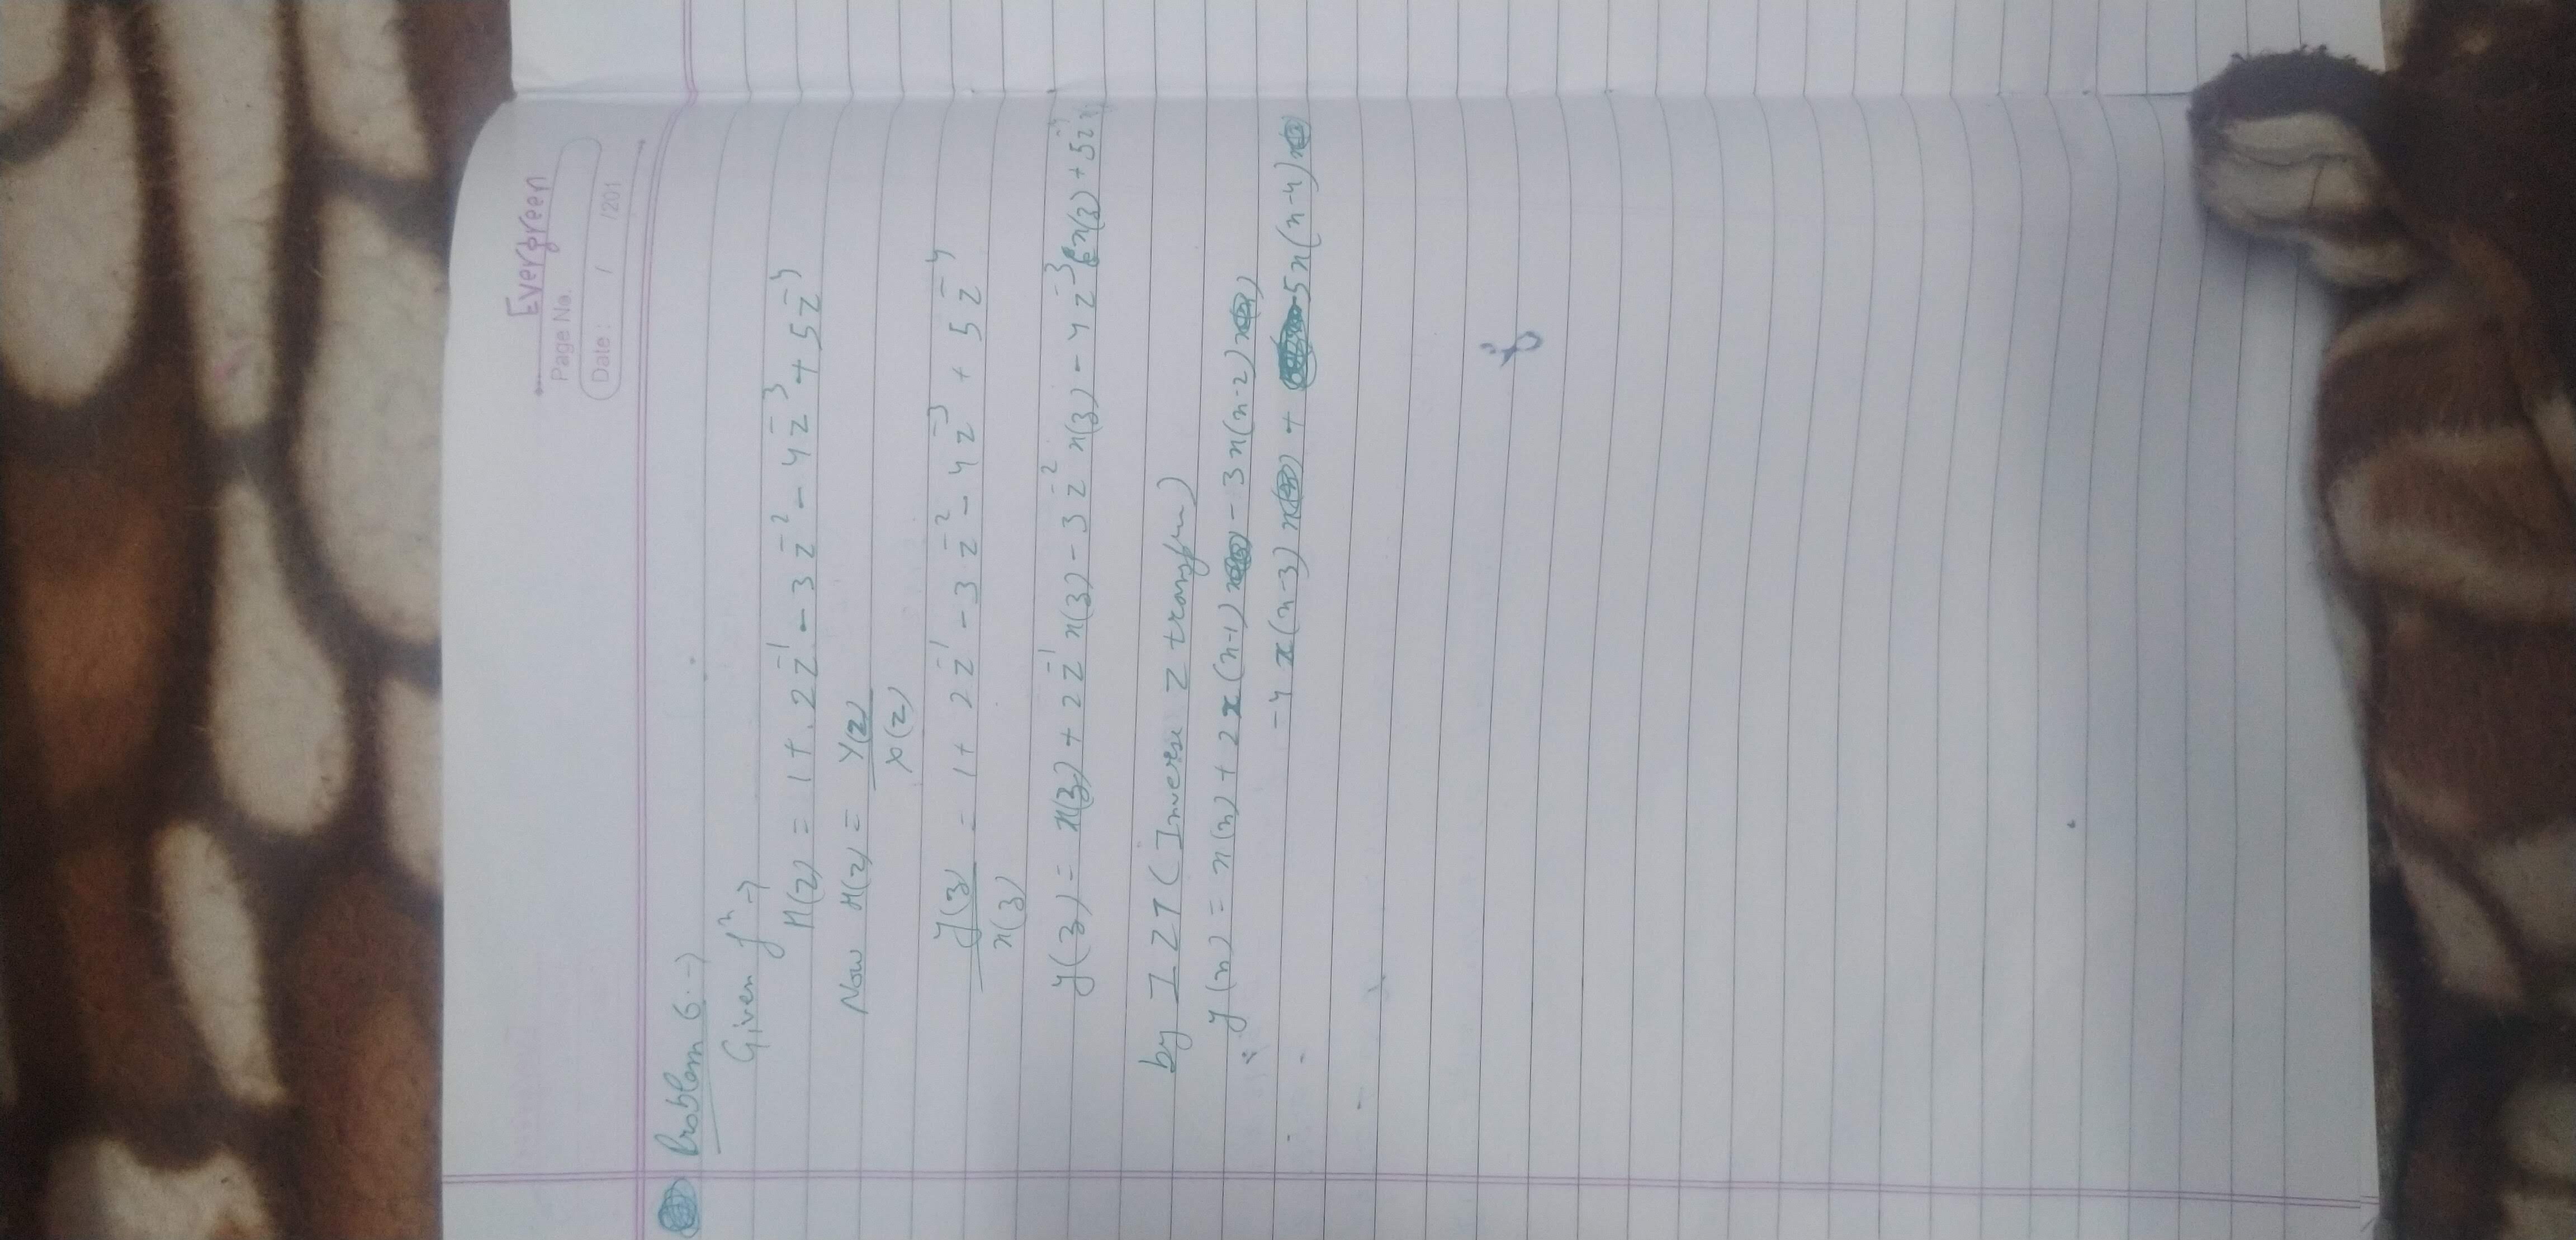 Evergreen
Page No.
Date : / /201
Problem 6 :→
Given fⁿ →
H(z) = 1 + 2z⁻¹ - 3z⁻² - 4z⁻³ + 5z⁻⁴
Now H(z) = Y(z)
X(z)
y(z) = 1 + 2z⁻¹ - 3z⁻² - 4z⁻³ + 5z⁻⁴
x(z)
y(z) = x(z) + 2z⁻¹ x(z) - 3z⁻² x(z) - 4z⁻³ x(z) + 5z⁻⁴
by IZT (Inverse Z transform)
∴ y(n) = x(n) + 2x(n-1) - 3x(n-2)
-4x(n-3) + 5x(n-4)